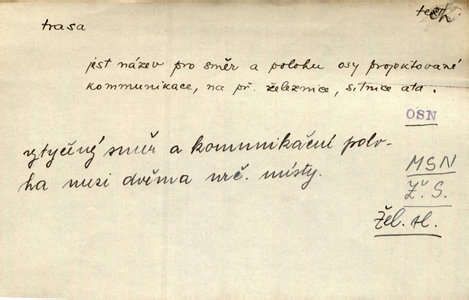 techn.
trasa
jest název pro směr a polohu osy projektované
kommunikace, na př. železnice, silnice atd.
OSN
vytyčený směr a komunikační polo-
ha mezi dvěma urč. místy.
MSN
Ž. S.
Žel. sl.